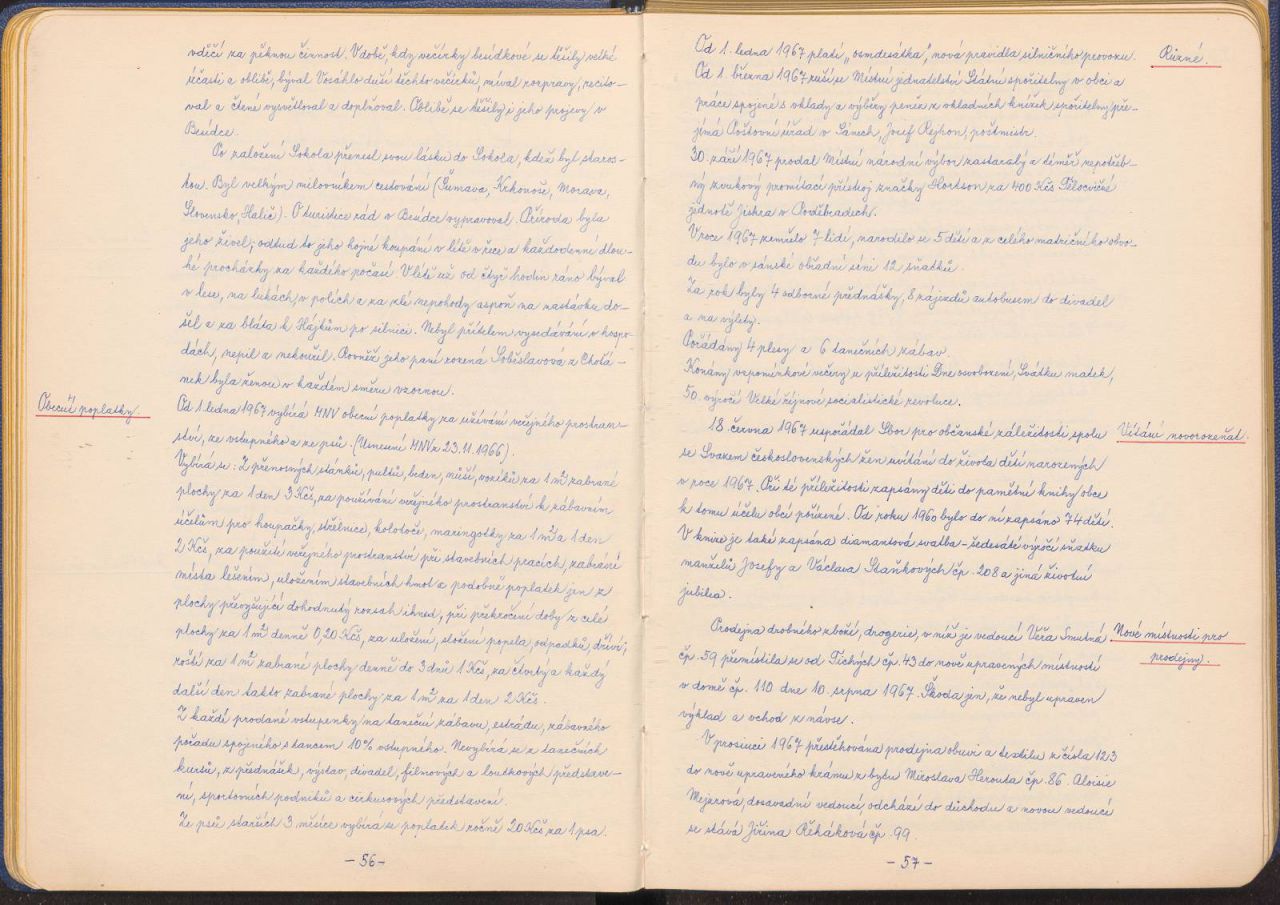 vděčí za pěknou činnost. V době, kdy večírky besídkové se těšily velké
účasti a oblibě, býval Vosáhlo duší těchto večírků, míval rozpravy, recito-
val a čtené vysvětloval a doplňoval. Oblibě se těšily i jeho projevy v
Besídce.
Po založení Sokola přenesl svou lásku do Sokola, kdež byl staros-
tou. Byl velkým milovníkem cestování (Šumava, Krkonoše, Morava,
Slovensko, Halič). O turistice rád v Besídce vypravoval. Příroda byla
jeho živel; odtud to jeho hojné koupání v létě v řece a každodenní dlou-
hé procházky za každého počasí. V létě už od čtyř hodin ráno býval
v lese, na lukách, v polích a za zlé nepohody aspoň na zastávku do-
šel a za bláta k Hájkům po silnici. Nebyl přítelem vysedávání v hospo-
dách, nepil a nekouřil. Rovněž jeho paní rozená Soběslavová z Choťá-
nek byla ženou v každém směru vzornou.
Obecní poplatky.
Od 1. ledna 1967 vybírá MNV obecní poplatky za užívání veřejného prostran-
ství, ze vstupného a ze psů. (Usnesení MNV z 23. 11. 1966).
Vybírá se: Z přenosných stánků, pultů, beden, nůší, vozíků za 1 m² zabrané
plochy za 1 den 3 Kčs, za používání veřejného prostranství k zábavním
účelům pro houpačky, střelnice, kolotoče, maringotky za 1 m² a 1 den
2 Kčs, za použití veřejného prostranství při stavebních pracích, zabrání
místa lešením, uložením stavebních hmot a podobně poplatek jen z
plochy převyšující dohodnutý rozsah ihned, při překročení doby z celé
plochy za 1 m² denně 0,20 Kčs, za uložení, složení popela, odpadků, dříví,
roští za 1 m² zabrané plochy denně do 3 dnů 1 Kčs, za čtvrtý a každý
další den takto zabrané plochy za 1 m² za 1 den 2 Kčs.
Z každé prodané vstupenky na taneční zábavu, estrádu, zábavného
pořadu spojeného s tancem 10% vstupného. Nevybírá se z tanečních
kursů, z přednášek, výstav, divadel, filmových a loutkových představe-
ní, sportovních podniků a cirkusových představení.
Ze psů starších 3 měsíce vybírá se poplatek ročně 20 Kčs za 1 psa.
- 56 -
Od 1. ledna 1967 platí „osmdesátka", nová pravidla silničního provozu.
Různé.
Od 1. března 1967 ruší se Místní jednatelství Státní spořitelny v obci a
práce spojené s vklady a výběry peněz z vkladních knížek spořitelny pře-
jímá Poštovní úřad v Sánech, Josef Rejhon, poštmistr.
30. září 1967 prodal Místní národní výbor zastaralý a téměř nepotřeb-
ný zvukový promítací přístroj značky Hortson za 400 Kčs Tělocvičné
jednotě Jiskra v Poděbradech.
V roce 1967 zemřelo 7 lidí, narodilo se 5 dětí a z celého matričního obvo-
du bylo v sánské obřadní síni 12 sňatků.
Za rok byly 4 odborné přednášky, 8 zájezdů autobusem do divadel
a na výlety.
Pořádány 4 plesy a 6 tanečních zábav.
Konány vzpomínkové večery u příležitosti Dne osvobození, Svátku matek,
50. výročí Velké říjnové socialistické revoluce.
18. června 1967 uspořádal Sbor pro občanské záležitosti spolu
Vítání novorozeňat.
se Svazem československých žen uvítání do života dětí narozených
v roce 1967. Při té příležitosti zapsány děti do pamětní knihy obce
k tomu účelu obcí pořízené. Od roku 1960 bylo do ní zapsáno 74 dětí.
V knize je také zapsána diamantová svatba - šedesáté výročí sňatku
manželů Josefy a Václava Staňkových čp. 208 a jiná životní
jubilea.
Prodejna drobného zboží, drogerie, v níž je vedoucí Věra Smutná
Nové místnosti pro
prodejny.
čp. 59 přemístila se od Tichých čp. 43 do nově upravených místností
v domě čp. 110 dne 10. srpna 1967. Škoda jen, že nebyl upraven
výklad a vchod z návse.
V prosinci 1967 přestěhována prodejna obuvi a textilu z čísla 123
do nově upraveného krámu z bytu Miroslava Herouta čp. 86. Aloisie
Mejzrová, dosavadní vedoucí, odchází do důchodu a novou vedoucí
se stává Jiřina Řeháková čp. 99.
- 57 -